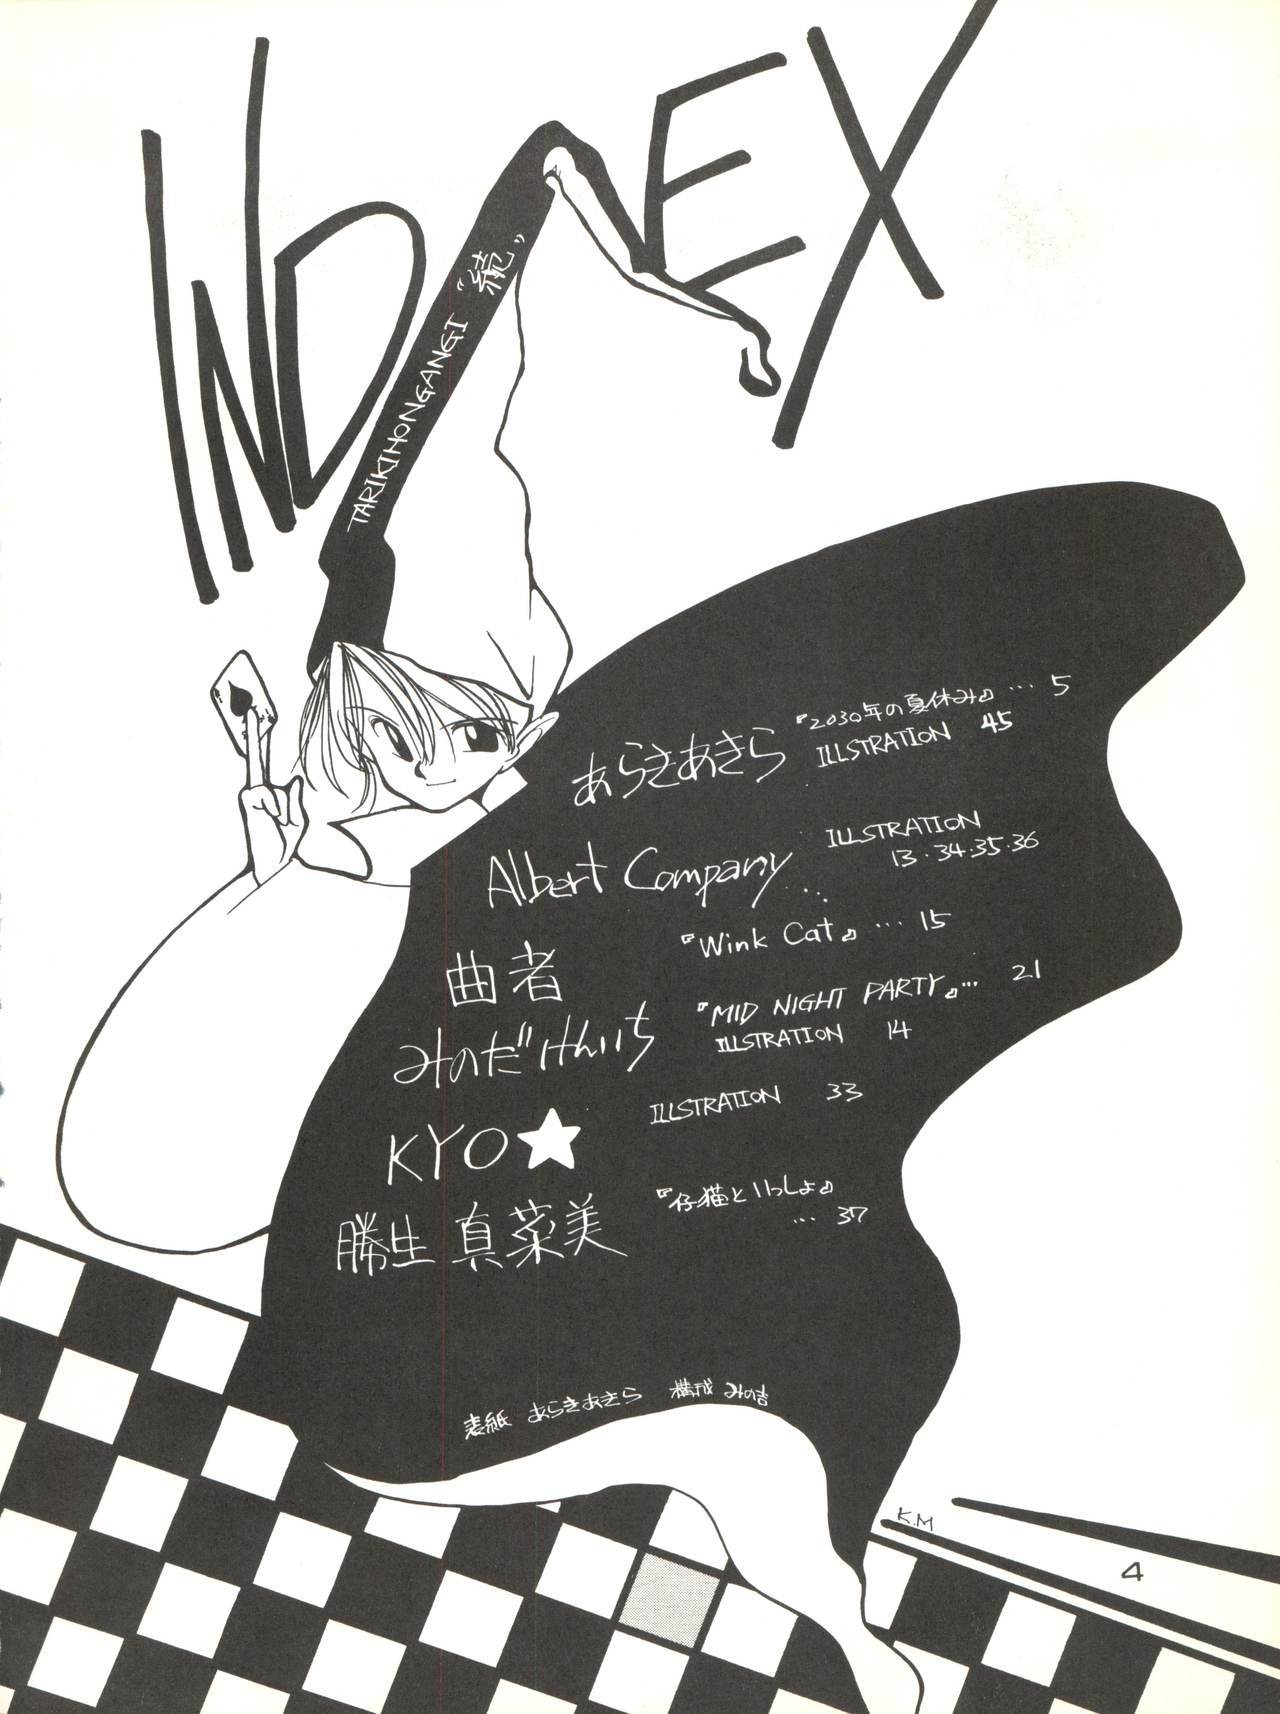 INDEX
TARIKIHONGANGI "続"
あらきあきら
『2030年の夏休み』… 5
ILLSTRATION 45
Albert Company …
ILLSTRATION
13・34・35・36
曲者
『Wink Cat』… 15
みのだけんいち
『MID NIGHT PARTY』… 21
ILLSTRATION 14
KYO★
ILLSTRATION 33
勝生 真菜美
『仔猫といっしょ』
… 37
表紙 あらきあきら 構成 みの吉
K.M
4